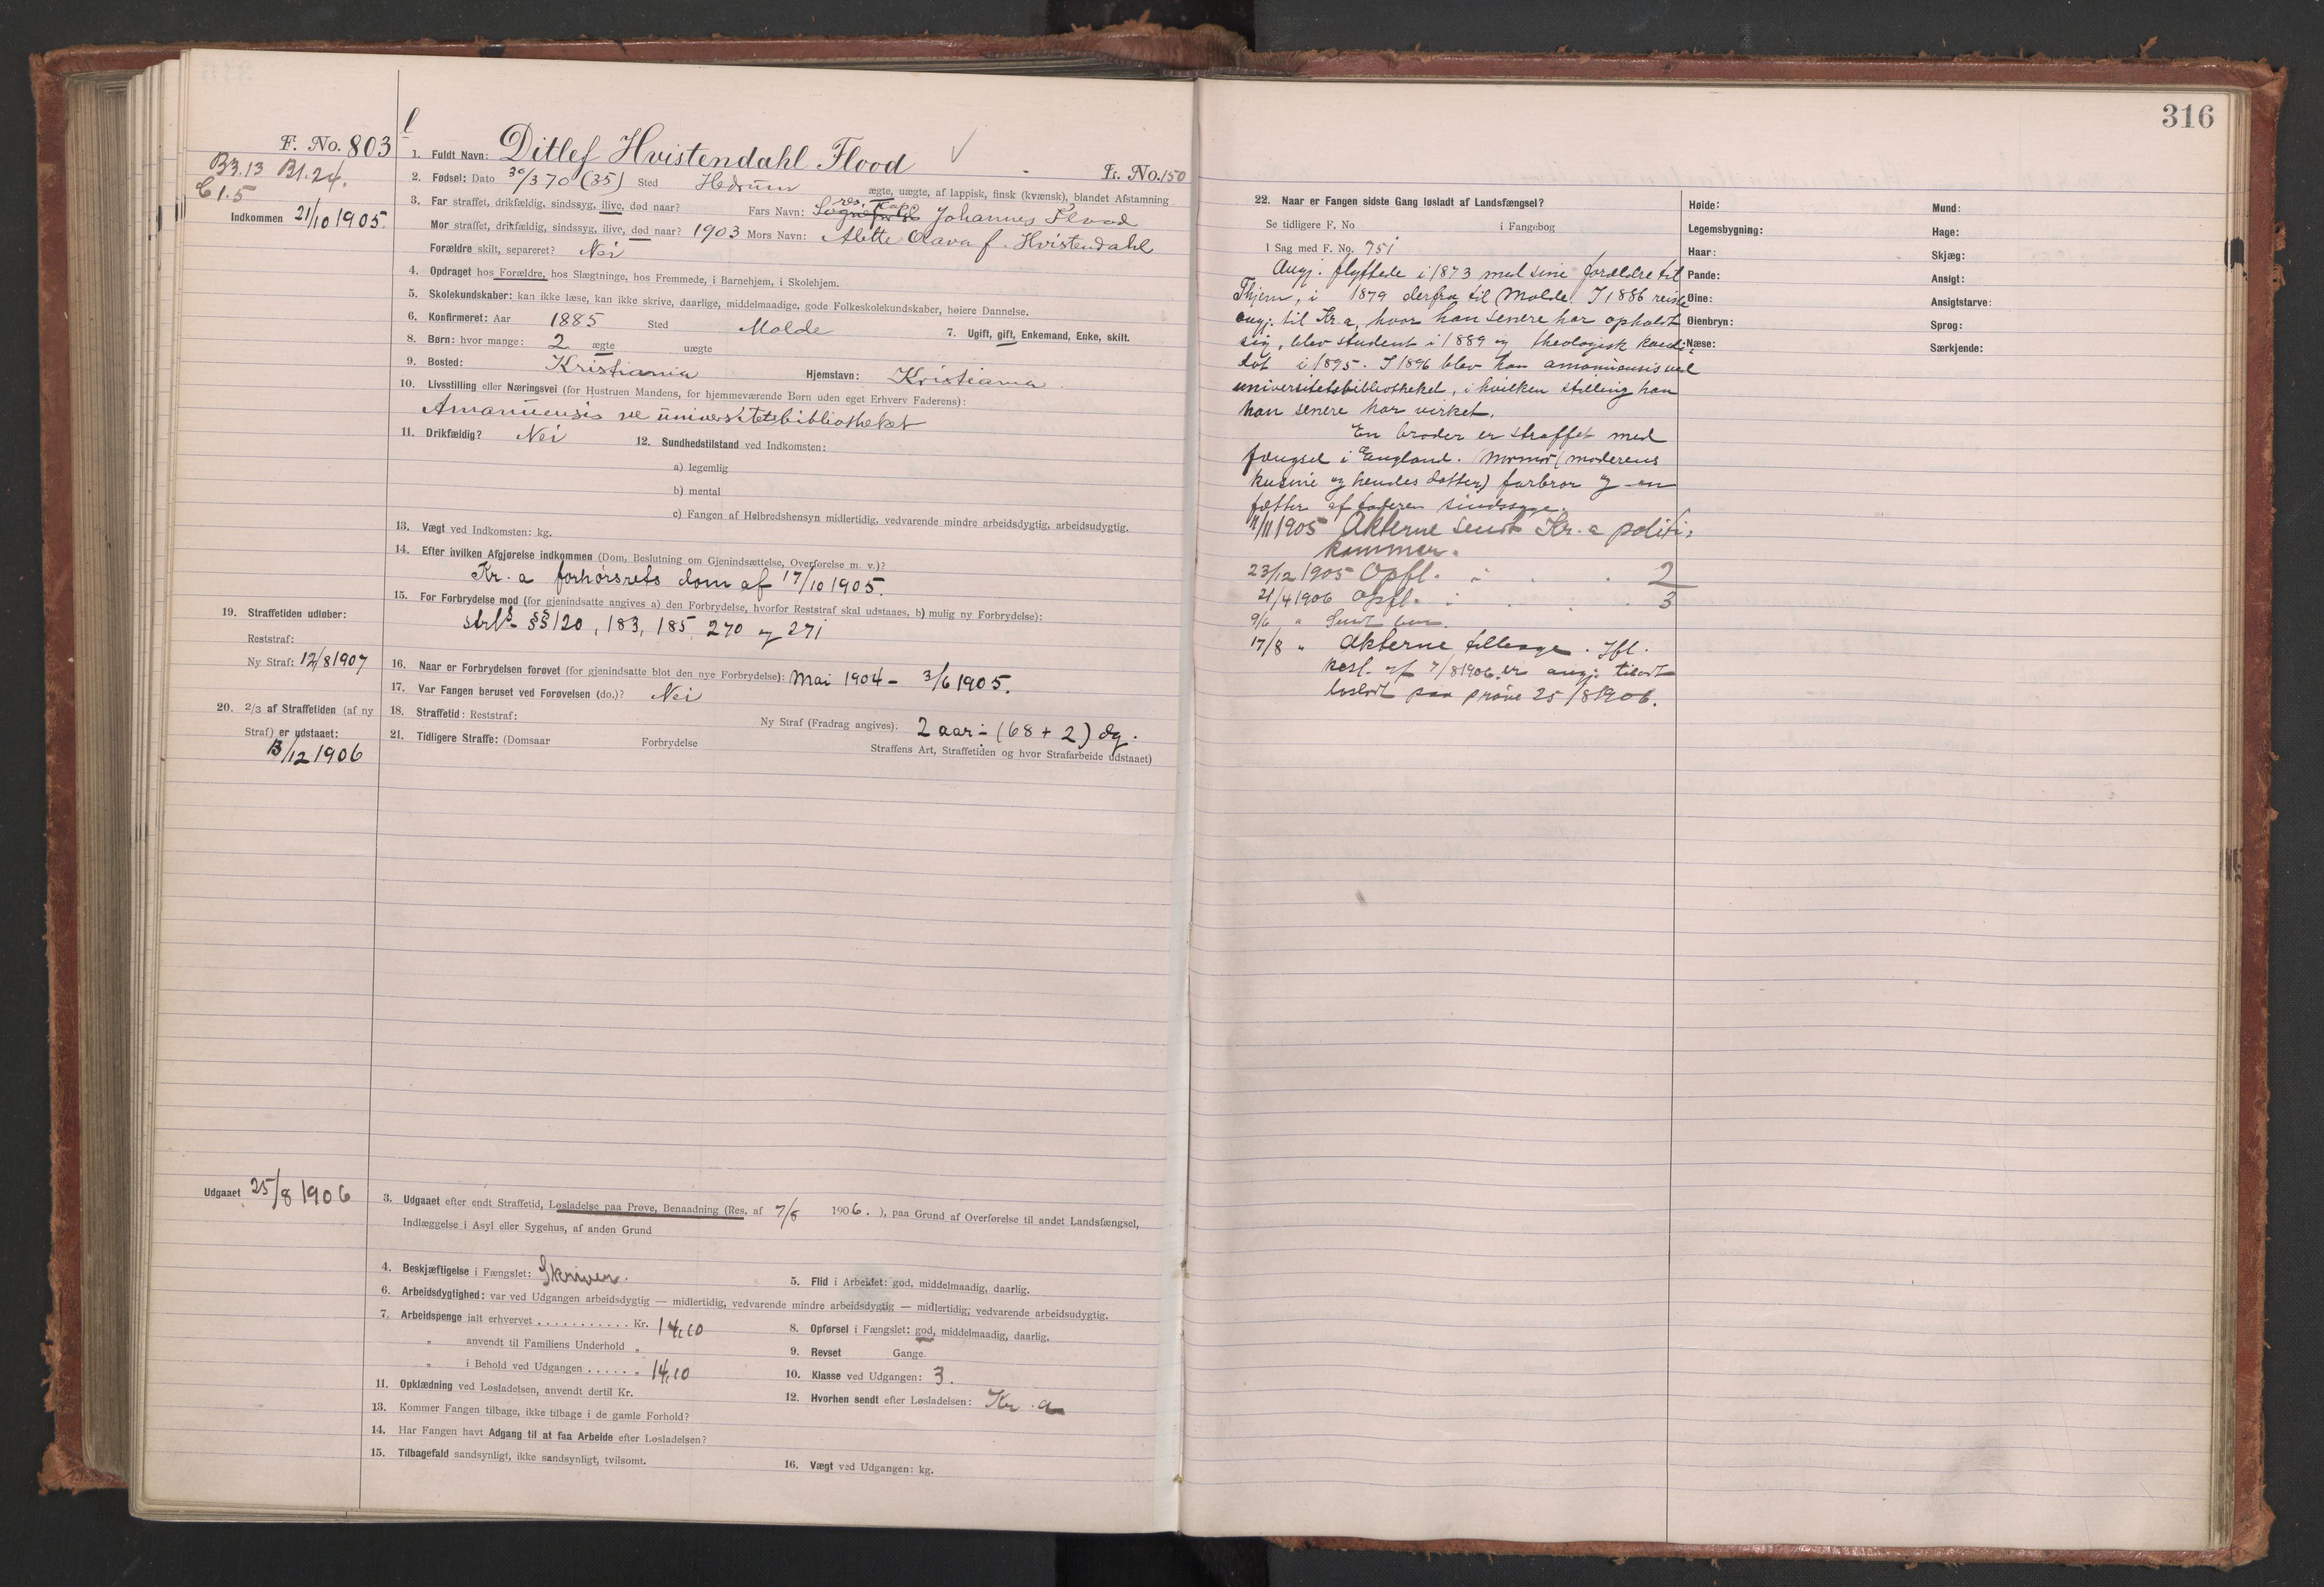 316
F. No. 803
B3.13 B1.24.
C1.5
Indkommen 21/10 1905.
1. Fuldt Navn: Ditlef Hvistendahl Flood
Fr. No. 150
2. Fødsel: Dato 30/3 70 (35) Sted Hedrum ægte, uægte, af lappisk, finsk (kvænsk), blandet Afstamning
3. Far straffet, drikfældig, sindssyg, ilive, død naar? Fars Navn: res. Kap. Johannes Flood
Mor straffet, drikfældig, sindssyg, ilive, død naar? 1903 Mors Navn: Alette Olava f. Hvistendahl
Forældre skilt, separeret? Nei
4. Opdraget hos Forældre, hos Slægtninge, hos Fremmede, i Barnehjem, i Skolehjem.
5. Skolekundskaber: kan ikke læse, kan ikke skrive, daarlige, middelmaadige, gode Folkeskolekundskaber, høiere Dannelse.
6. Konfirmeret: Aar 1885 Sted Molde 7. Ugift, gift, Enkemand, Enke, skilt.
8. Børn: hvor mange: 2 ægte uægte
9. Bosted: Kristiania Hjemstavn: Kristiania
10. Livsstilling eller Næringsvei (for Hustruen Mandens, for hjemmeværende Børn uden eget Erhverv Faderens):
Amanuensis ve universitetsbibliotheket
11. Drikfældig? Nei 12. Sundhedstilstand ved Indkomsten:
a) legemlig
b) mental
c) Fangen af Helbredshensyn midlertidig, vedvarende mindre arbeidsdygtig, arbeidsudygtig.
13. Vægt ved Indkomsten: kg.
14. Efter hvilken Afgjørelse indkommen (Dom, Beslutning om Gjenindsættelse, Overførelse m. v.)?
Kr.a forhørsrets dom af 17/10 1905.
15. For Forbrydelse mod (for gjenindsatte angives a) den Forbrydelse, hvorfor Reststraf skal udstaaes, b) mulig ny Forbrydelse):
strl's §§ 120, 183, 185, 270 og 271
16. Naar er Forbrydelsen forøvet (for gjenindsatte blot den nye Forbrydelse): Mai 1904 - 3/6 1905.
17. Var Fangen beruset ved Forøvelsen (do.)? Nei
18. Straffetid: Reststraf: Ny Straf (Fradrag angives). 2 aar ÷ (68 + 2) dg.
19. Straffetiden udløber:
Reststraf:
Ny Straf: 12/8 1907
20. 2/3 af Straffetiden (af ny
Straf) er udstaaet:
13/12 1906
21. Tidligere Straffe: (Domsaar Forbrydelse Straffens Art, Straffetiden og hvor Strafarbeide udstaaet)
Udgaaet 25/8 1906
3. Udgaaet efter endt Straffetid, Løsladelse paa Prøve, Benaadning (Res. af 7/8 1906.), paa Grund af Overførelse til andet Landsfængsel,
Indlæggelse i Asyl eller Sygehus, af anden Grund
4. Beskjæftigelse i Fængslet: Skriver. 5. Flid i Arbeidet: god, middelmaadig, daarlig.
6. Arbeidsdygtighed: var ved Udgangen arbeidsdygtig — midlertidig, vedvarende mindre arbeidsdygtig — midlertidig, vedvarende arbeidsudygtig.
7. Arbeidspenge ialt erhvervet . . . . . . . . . . . Kr. 14,10 8. Opførsel i Fængslet: god, middelmaadig, daarlig.
" anvendt til Familiens Underhold " 9. Revset Gange.
" i Behold ved Udgangen . . . . . . " 14,10 10. Klasse ved Udgangen: 3.
11. Opklædning ved Løsladelsen, anvendt dertil Kr. 12. Hvorhen sendt efter Løsladelsen: Kr.a
13. Kommer Fangen tilbage, ikke tilbage i de gamle Forhold?
14. Har Fangen havt Adgang til at faa Arbeide efter Løsladelsen?
15. Tilbagefald sandsynligt, ikke sandsynligt, tvilsomt.
16. Vægt ved Udgangen: kg.
22. Naar er Fangen sidste Gang løsladt af Landsfængsel?
Se tidligere F. No i Fangebog
I Sag med F. No. 751
Angj. flyttede i 1873 med sine forældre til
, i 1879 derfra til Molde. I 1886 reiste
angj. til Kr.a, hvor han senere har opholdt
sig, blev student i 1889 og theologisk kandi-
dat i 1895. I 1896 blev han amanuensis ved
universitetsbibliotheket, i hvilken stilling han
han senere har virket.
En broder er straffet med
fængsel i England. Mormor (moderens
kusine og hendes datter) farbror og en
fætter af faderen sindssyge.
11/11 1905 Akterne sendt Kr.a politi-
kammer.
23/12 1905 Opfl. i . . 2
21/4 1906 Opfl. i . . 3
9/6 " Sendt
17/8 " Akterne tilbage. Ifl.
resl. af 7/8 1906 er angj. tilladt
løsladt paa prøve 25/8 1906.
Høide:
Legemsbygning:
Haar:
Pande:
Øine:
Øienbryn:
Næse:
Mund:
Hage:
Skjæg:
Ansigt:
Ansigtsfarve:
Sprog:
Særkjende: